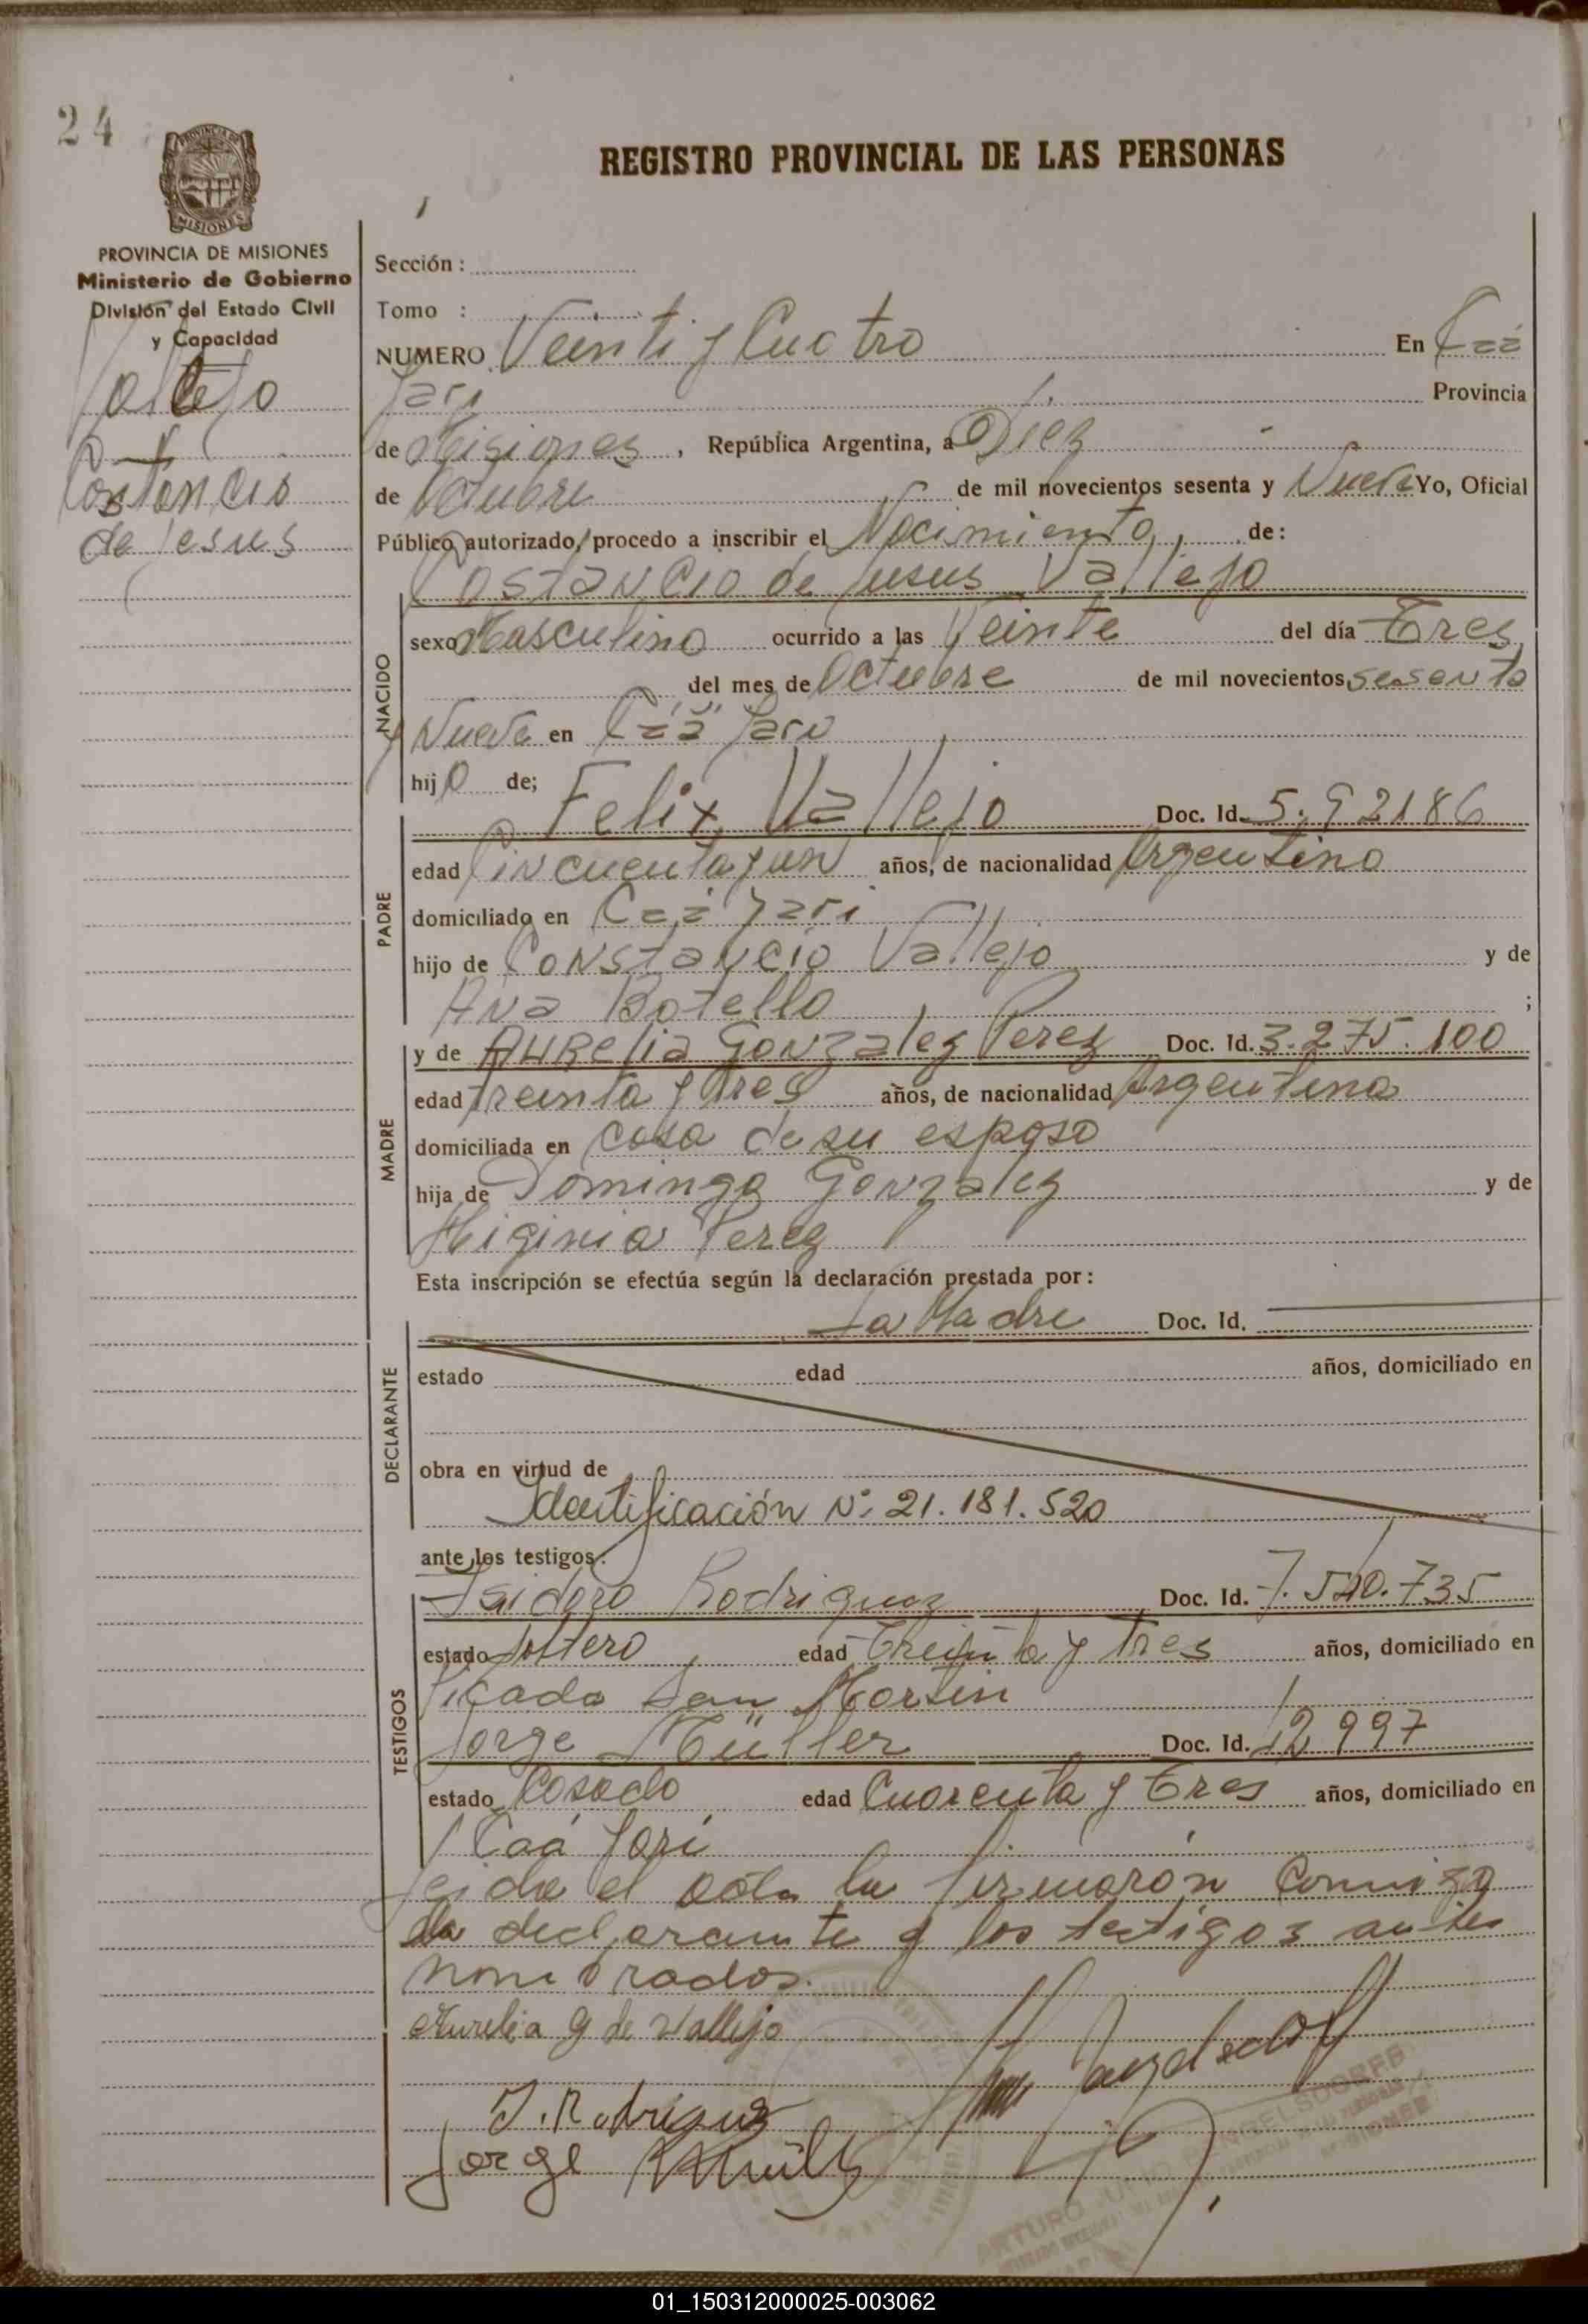 24
REGISTRO PROVINCIAL DE LAS PERSONAS
MISIONES
PROVINCIA DE MISIONES
Ministerio de Gobierno
División del Estado Civil
y Capacidad
Vallejo
Constancio
de Jesus
Sección :
Tomo :
NUMERO Veinti y Cuatro En Caá
Yari Provincia
de Misiones , República Argentina, a Diez
de Octubre de mil novecientos sesenta y Nueve Yo, Oficial
Público autorizado, procedo a inscribir el Nacimiento de:
Costancio de Jesus Vallejo
NACIDO
sexo Masculino ocurrido a las Veinte del día Tres
del mes de Octubre de mil novecientos sesenta
y Nueve en Caá Yari
hijo de;
PADRE
Felix Vallejo Doc. Id. 5.92186
edad Cincuenta y un años, de nacionalidad Argentino
domiciliado en Caá Yari
hijo de Constancio Vallejo y de
Ana Botello ;
MADRE
y de Aurelia Gonzalez Perez Doc. Id. 3.275.100
edad treinta y tres años, de nacionalidad Argentina
domiciliada en casa de su esposo
hija de Domingo Gonzalez y de
Higinia Perez
Esta inscripción se efectúa según la declaración prestada por :
DECLARANTE
La Madre Doc. Id.
estado edad años, domiciliado en
obra en virtud de
Identificación Nº 21.181.520
ante los testigos:
TESTIGOS
Isidoro Rodriguez Doc. Id. 7.540.735
estado soltero edad treinta y tres años, domiciliado en
Picada San Martin
Jorge Müller Doc. Id. 12997
estado Casado edad Cuarenta y Tres años, domiciliado en
Caá Yari
Leida el acta la firmaron conmigo
la declarante y los testigos antes
nombrados.
Aurelia G de Vallejo
I. Rodriguez
Jorge Müller
ARTURO
MISIONES
01_150312000025-003062